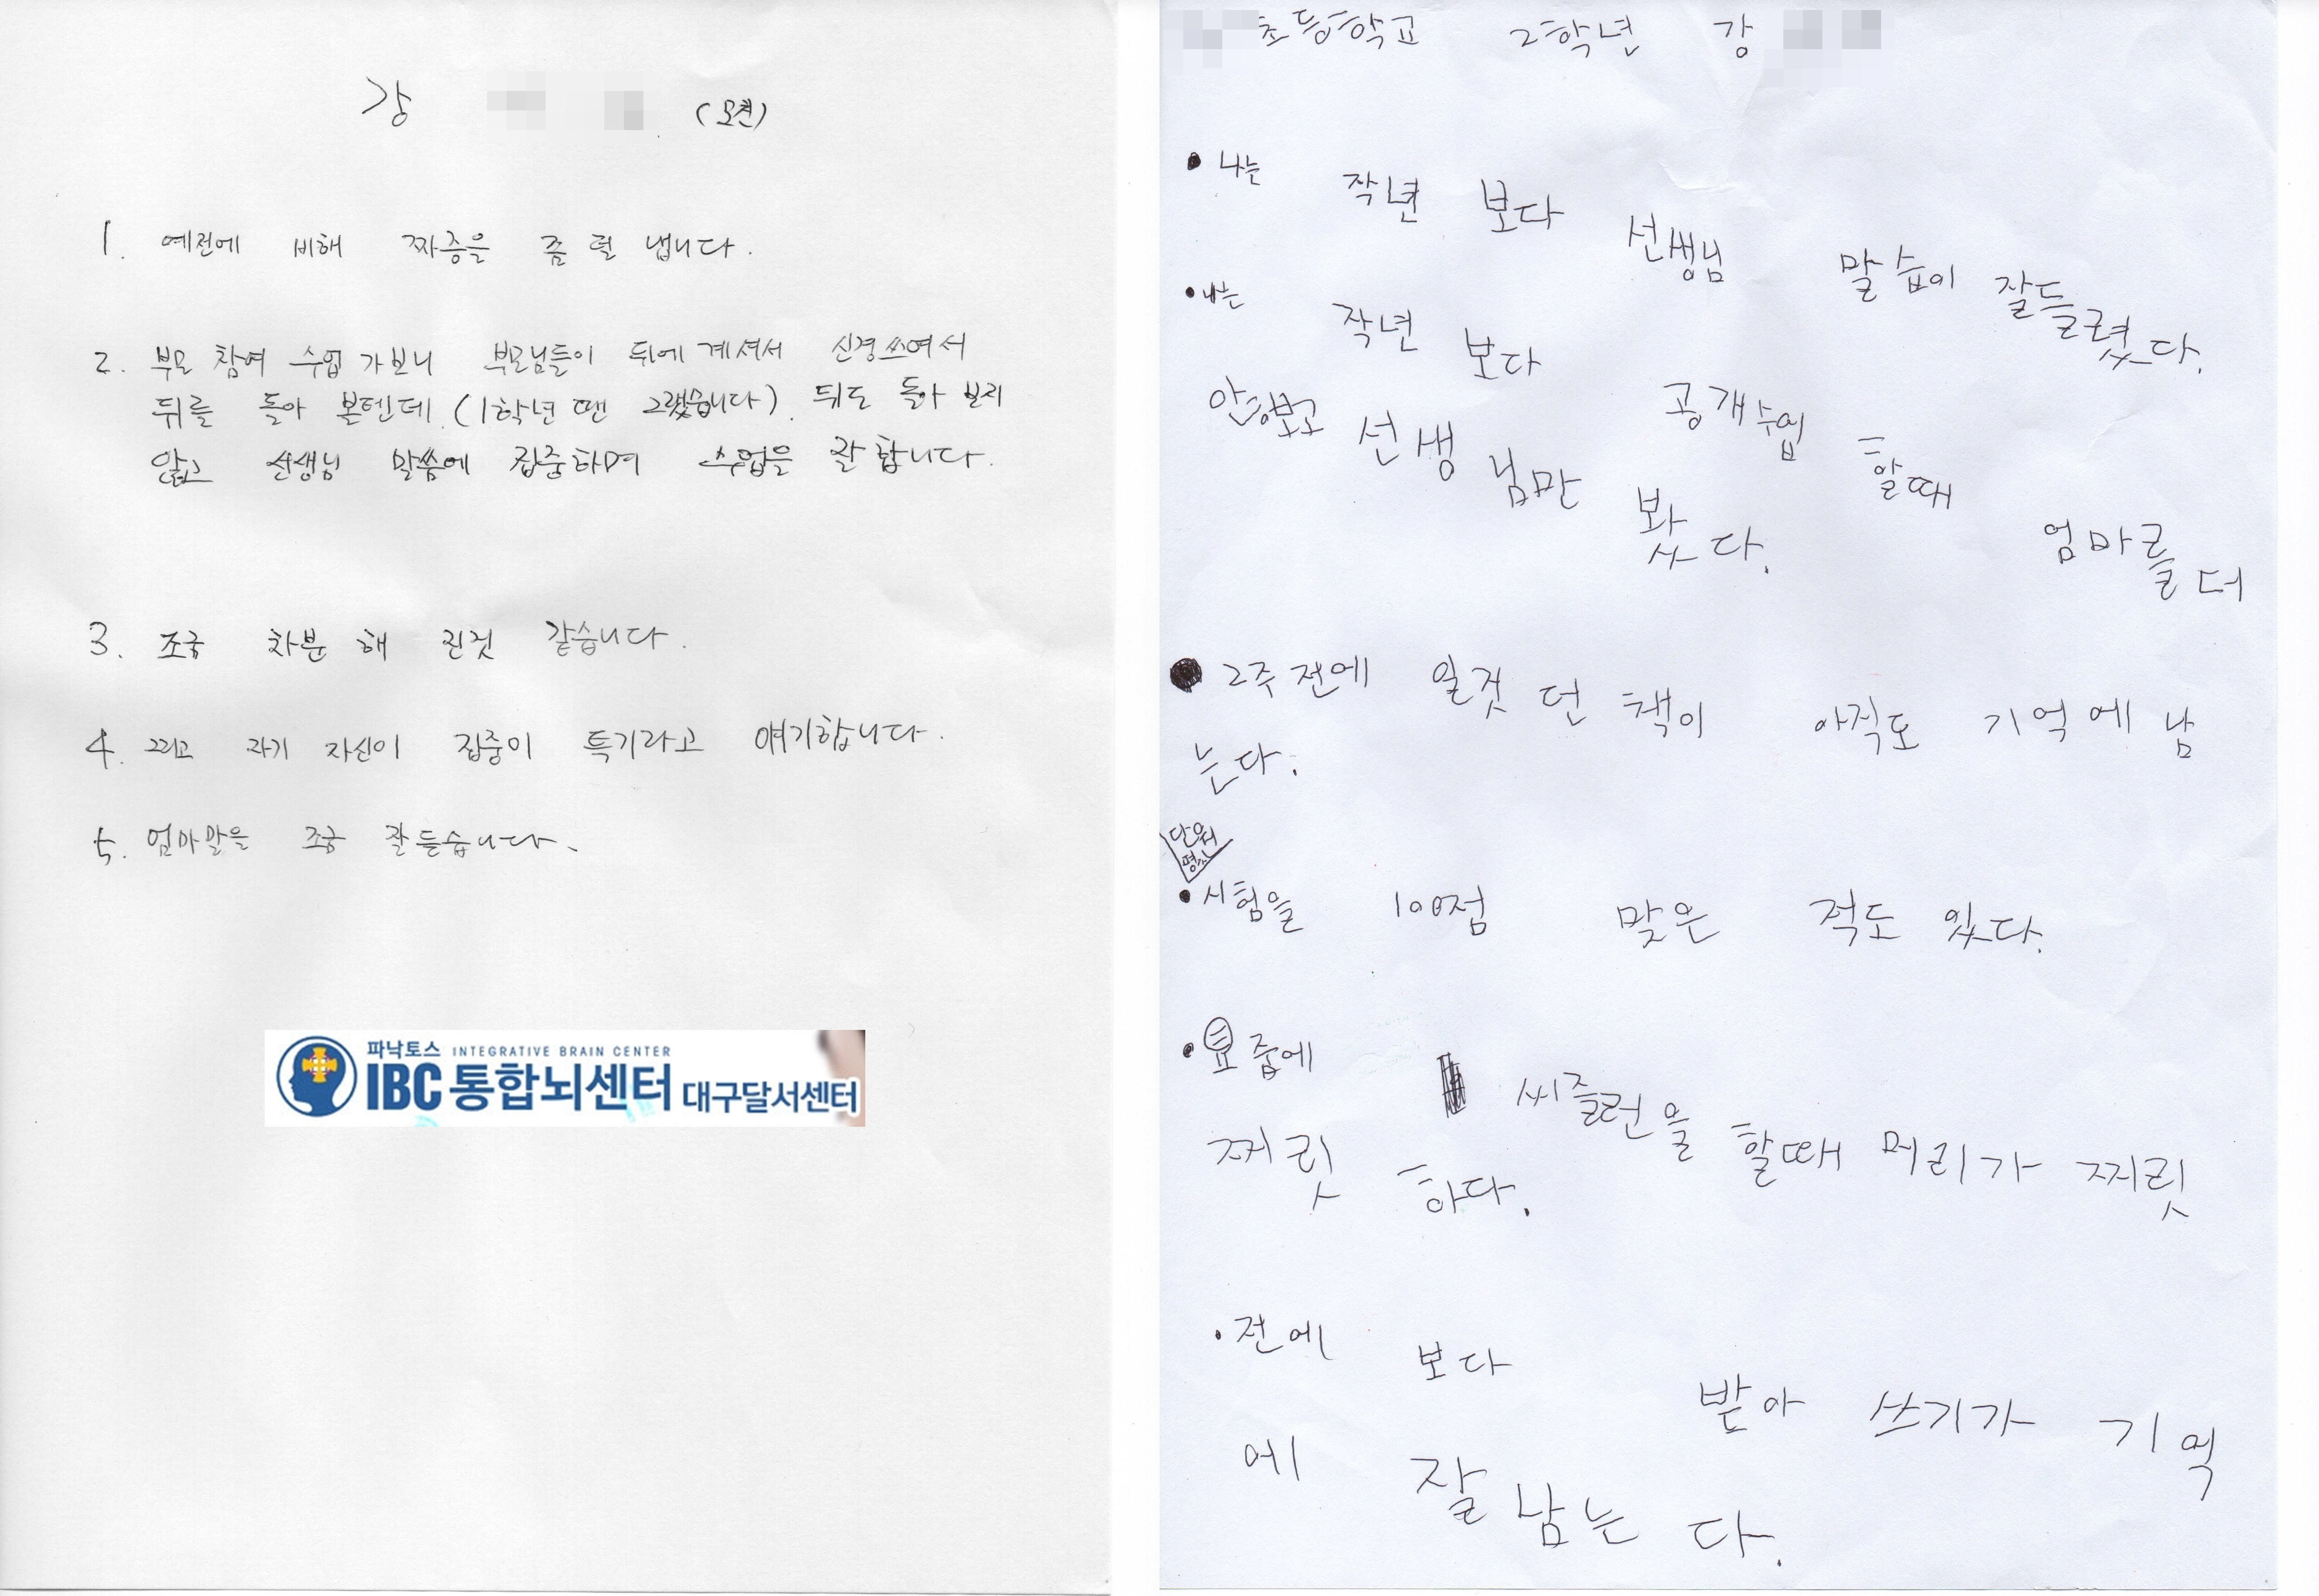 강 (모친)
1. 예전에 비해 짜증을 좀 덜 냅니다.
2. 부모 참여 수업 가보니 부모님들이 뒤에 계셔서 신경쓰여서
뒤를 돌아 볼텐데 (1학년 땐 그랬습니다). 뒤도 돌아 보지
않고 선생님 말씀에 집중하며 수업을 잘 합니다.
3. 조금 차분 해 진것 같습니다.
4. 그리고 자기 자신이 집중이 특기라고 얘기합니다.
5. 엄마말을 조금 잘 듣습니다.
파낙토스 INTEGRATIVE BRAIN CENTER
IBC 통합뇌센터 대구달서센터
초등학교 2학년 강
• 나는 작년 보다 선생님 말습이 잘들렸다.
• 나는 작년 보다 공개수업 할때 엄마를 더
안보고 선생님만 봤다.
• 2주전에 일것던 책이 아직도 기억에 남
는다.
단원
평가
• 시험을 100점 맞은 적도 있다.
• 요즘에 씨즐런을 할때 머리가 찌릿
찌릿 하다.
• 전에 보다 받아 쓰기가 기억
에 잘남는다.